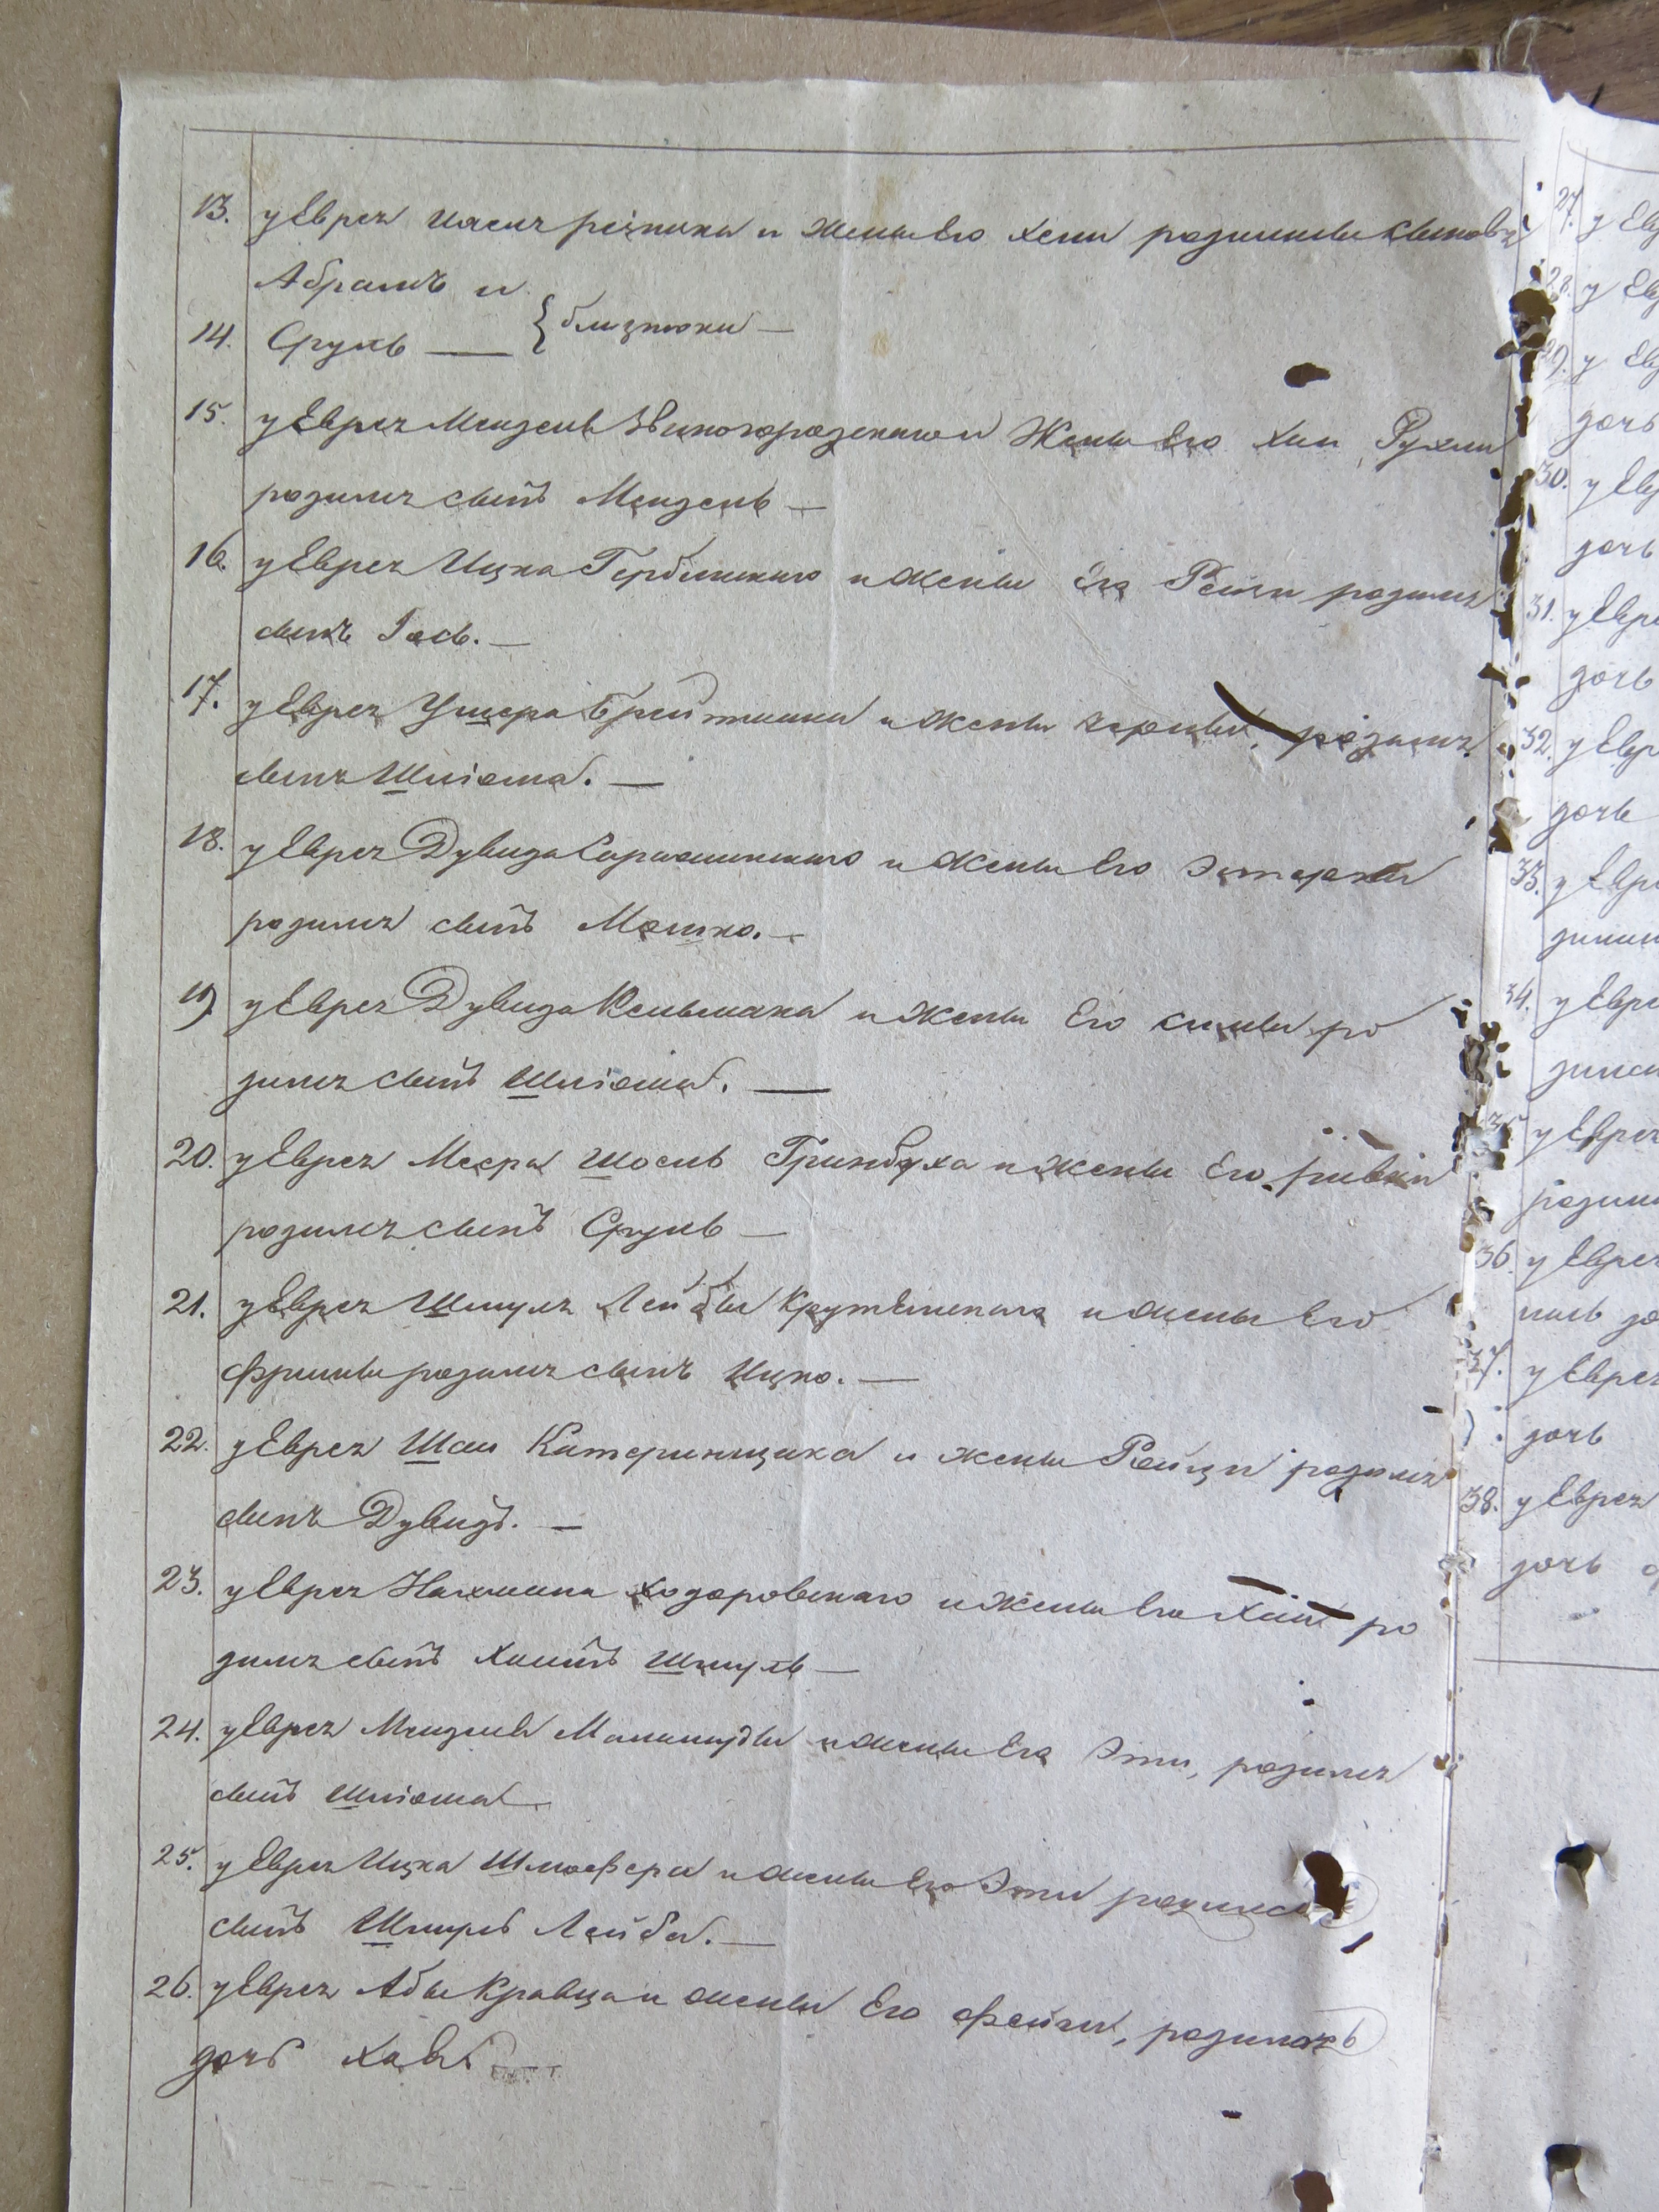 13. у Еврея иосия резника и жены Его хени родились сыновья
Абрамъ и
14. Сруль — { близнюки —
15. у Еврея Менделя Звиногородскаго и Жены Его Хаи Рухли
родился сынъ Мендель —
16. у Еврея Ицка Гербинскаго и жены Его Рейзи родился
сынъ Іось. —
17. у Еврея Ушера Брейтмана и жены черны, родился
сынъ Шліома. —
18. у Еврея Дувида и жены Его Эстерки
родился сынъ Мошко. —
19) у Еврея Дувида Кельмана и жены Его симы ро
дился сынъ Шліома. —
20. у Еврея Меера Шоель Гринбуха и жены Его ривки
родился сынъ Сруль —
21. у Еврея Шмуля Лейбы Крутянскаго и жены Его
Фримы родился сынъ Ицко. —
22. у Еврея Шаи Катеринщика и жены Рейзи родился
сынъ Дувидъ. —
23. у Еврея Нахмана ходоровскаго и Жены Его Хаи ро
дился сынъ Хаимъ Шмуль —
24. у Еврея Менделя и жены Его Эти, родился
сынъ Шліома —
25. у Еврея Ицка Шлиофера и жены Его Эти родился
сынъ Шмуль Лейба. —
26. у Еврея Абы Кравца и жены Его Фейги, родилась
дочь хава —
27. у
28. у
29. у
дочь
30. у
дочь
31. у
дочь
32. у
дочь
33. у
34. у
35. у Еврея
36. у Еврея
37. у Еврея
дочь
38. у Еврея
дочь